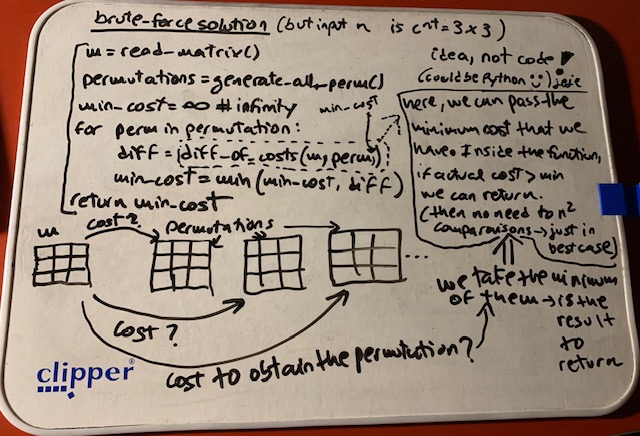 brute-force solution (but input n is cnt = 3 x 3)
m = read_matrix()
permutations = generate_all_perm()
min_cost = ∞ # infinity
for perm in permutation:
diff = diff_of_costs(m, perm,)
min_cost = min (min_cost, diff)
return min_cost
min_cost
idea, not code
(could be Python :)) jeje
here, we can pass the
minimum cost that we
have. Inside the function,
if actual cost > min
we can return.
(then no need to n²
comparaisons → just in
best case)
m
cost?
permutations
...
cost?
cost to obtain the permutation?
we take the minimum
of them → is the
result
to
return
clipper®